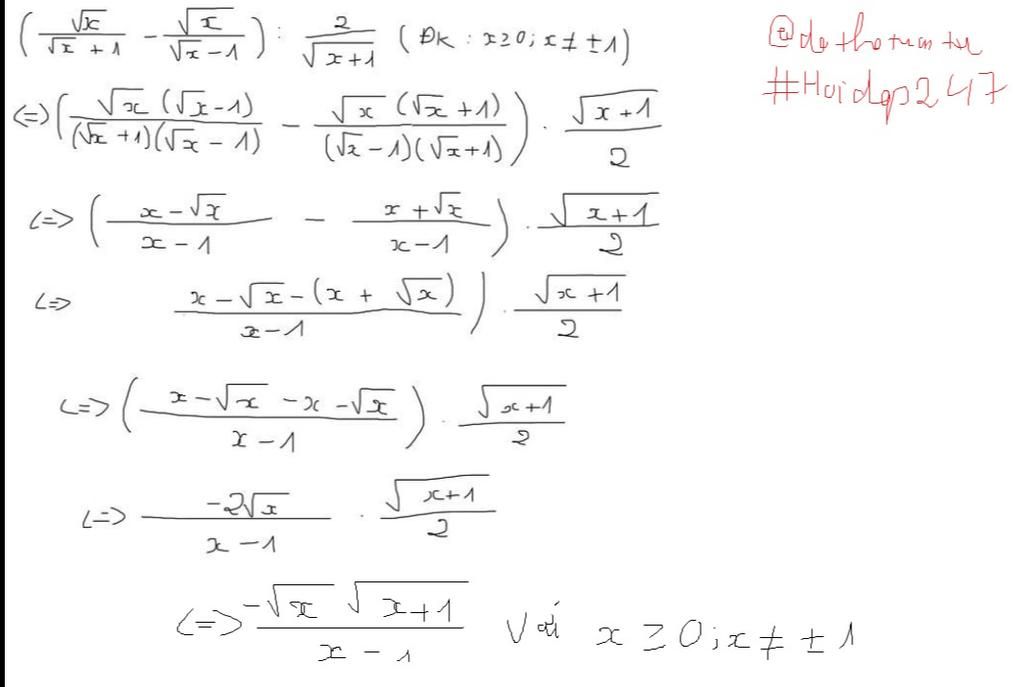 (√x/(√x + 1) - √x/(√x - 1)) : 2/√(x+1) (ĐK : x≥0; x≠ ±1)
@dothotuantu
#Hoidap247
<=> (√x (√x - 1)/((√x + 1)(√x - 1)) - √x (√x + 1)/((√x - 1)(√x + 1))) . √(x+1)/2
<=> ((x - √x)/(x - 1) - (x + √x)/(x - 1)) . √(x+1)/2
<=> (x - √x - (x + √x))/(x - 1) ) . √(x+1)/2
<=> ((x - √x - x - √x)/(x - 1)) . √(x+1)/2
<=> -2√x/(x - 1) . √(x+1)/2
<=> -√x √(x+1)/(x - 1) Với x ≥ 0; x ≠ ± 1